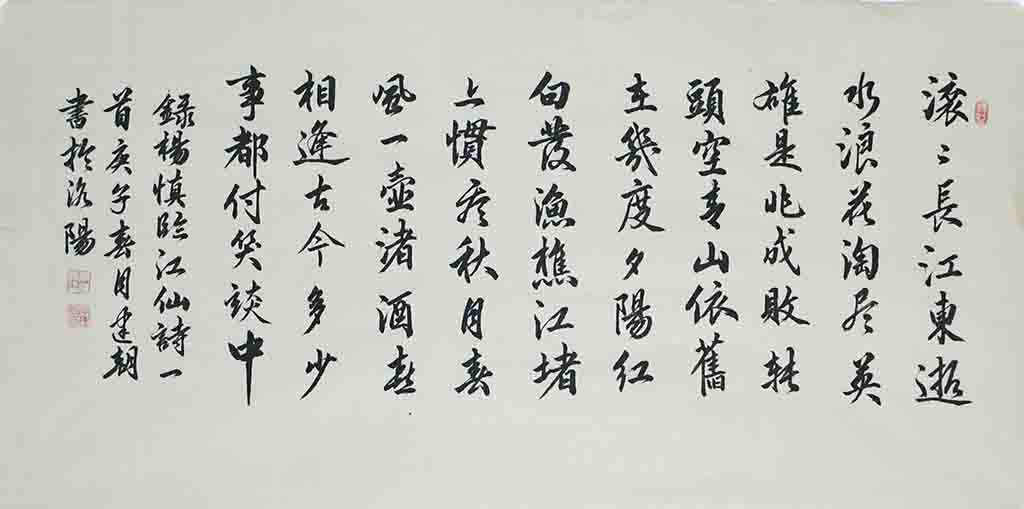 滾〻長江東逝
水浪花淘尽英
雄是非成敗转
頭空青山依舊
在幾度夕陽红
白發漁樵江堵
上慣看秋月春
風一壺渚酒喜
相逢古今多少
事都付笑談中
録楊慎臨江仙詩一
首庚子春月建朝
書於洛陽